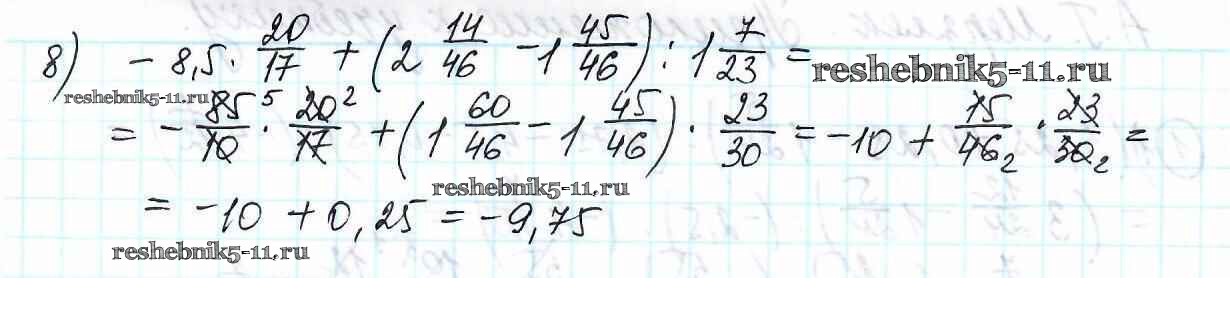 8) - 8,5 · 20/17 + (2 14/46 - 1 45/46) : 1 7/23 = reshebnik5-11.ru
reshebnik5-11.ru
= - 85/10 5 · 20/17 2 + (1 60/46 - 1 45/46) · 23/30 = -10 + 15/46 2 · 23/30 2 =
reshebnik5-11.ru
= -10 + 0,25 = -9,75
reshebnik5-11.ru